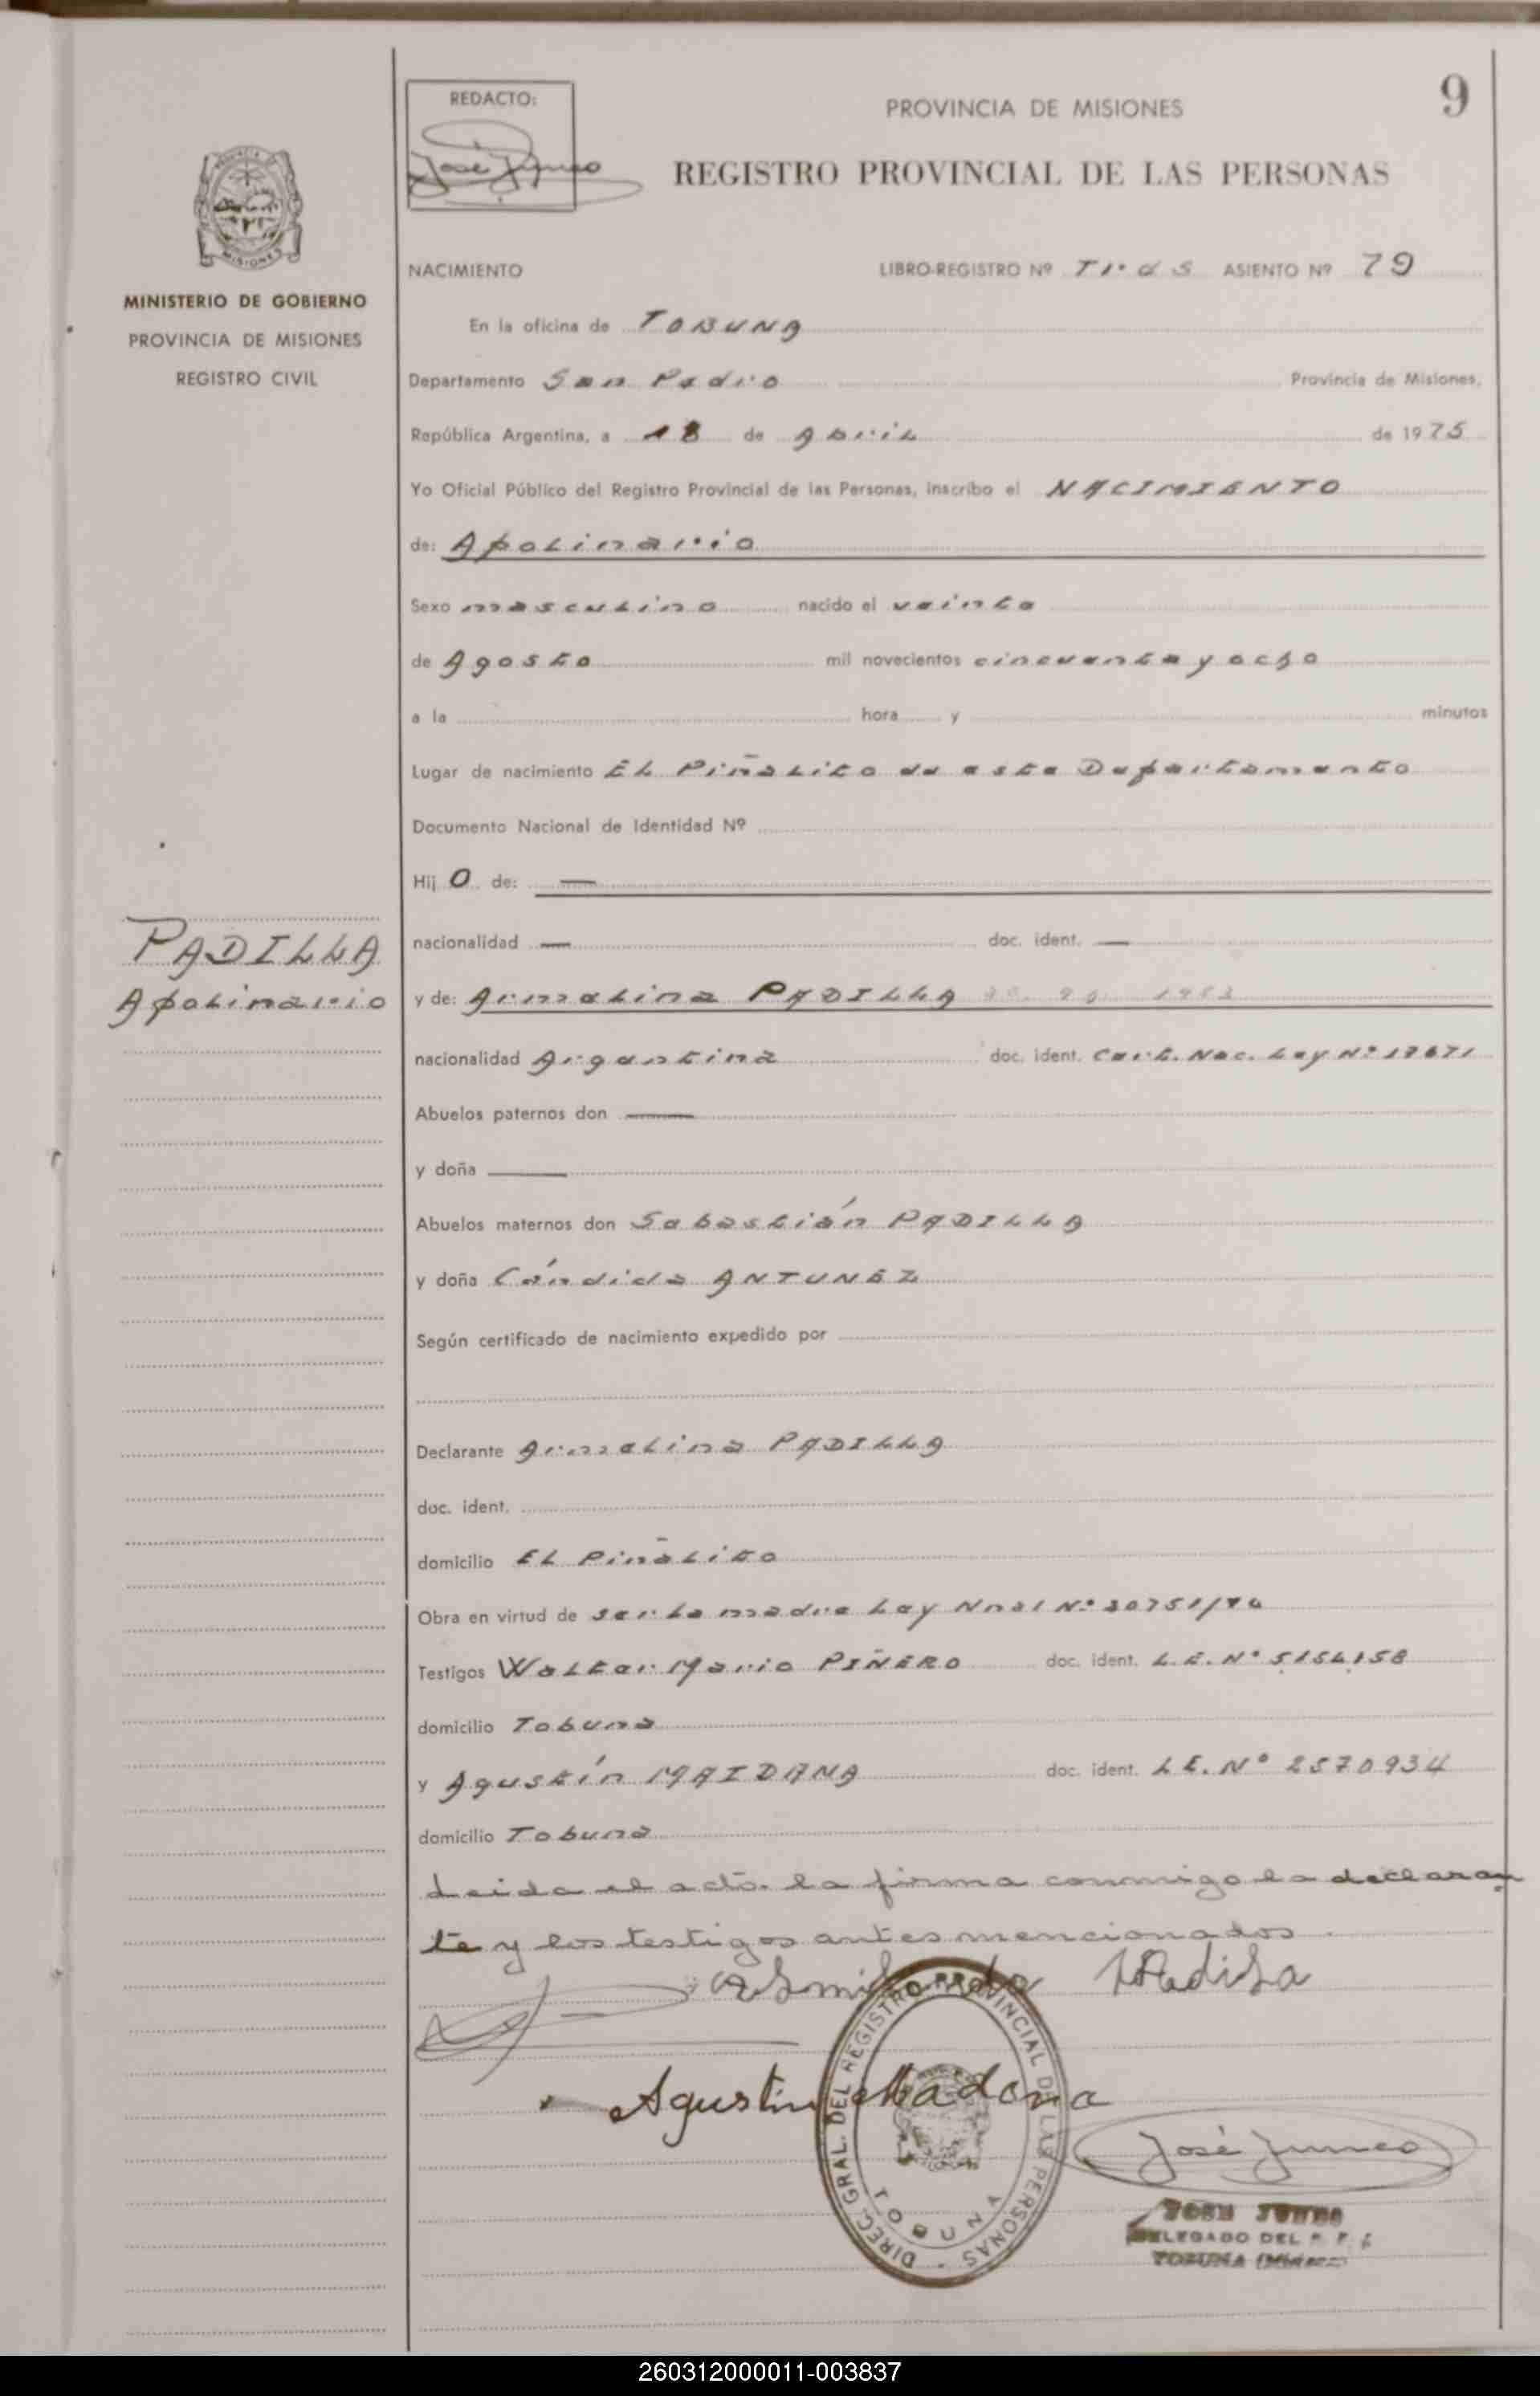 9
REDACTO:
PROVINCIA DE MISIONES
REGISTRO PROVINCIAL DE LAS PERSONAS
MINISTERIO DE GOBIERNO
PROVINCIA DE MISIONES
REGISTRO CIVIL
NACIMIENTO LIBRO-REGISTRO Nº T1º d 5 ASIENTO Nº 79
En la oficina de TOBUNA
Departamento San Pedro Provincia de Misiones,
República Argentina, a 18 de Abril de 1975
Yo Oficial Público del Registro Provincial de las Personas, inscribo el NACIMIENTO
de: Apolinario
Sexo masculino nacido el veinte
de Agosto mil novecientos cincuenta y ocho
a la hora y minutos
Lugar de nacimiento EL Piñalito de este Departamento
Documento Nacional de Identidad Nº
Hijo de: —
PADILLA
Apolinario
nacionalidad — doc. ident. —
y de: Armelina PADILLA
nacionalidad Argentina doc. ident. Cert. Nac. Ley Nº 17671
Abuelos paternos don —
y doña —
Abuelos maternos don Sebastián PADILLA
y doña Cándida ANTUNEZ
Según certificado de nacimiento expedido por
Declarante Armelina PADILLA
doc. ident.
domicilio EL Piñalito
Obra en virtud de ser la madre Ley Nnal Nº 20751/74
Testigos Walter Mario PIÑERO doc. ident. L.E. Nº 5154158
domicilio Tobuna
y Agustín MAIDANA doc. ident. L.E. Nº 2570934
domicilio Tobuna
Leida el acto la firma conmigo la declaran
te y los testigos antes mencionados.
Agustin Madona
José Junco
DIREC. GRAL. DEL REGISTRO PROVINCIAL DE LAS PERSONAS - TOBUNA
DELEGADO DEL
TOBUNA
260312000011-003837